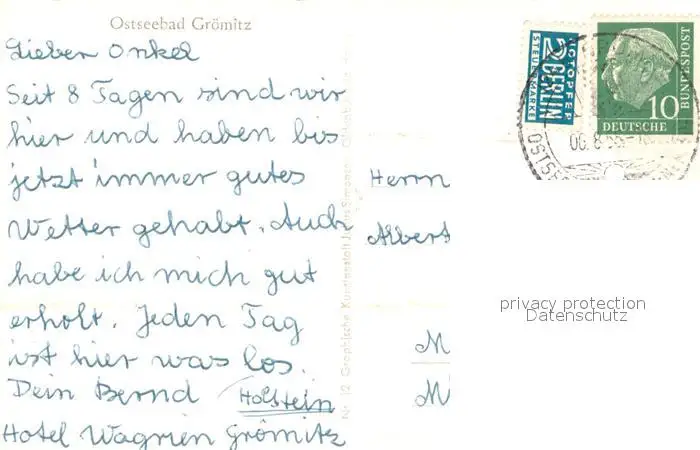 Ostseebad Grömitz
Lieber Onkel
Seit 8 Tagen sind wir
hier und haben bis
jetzt immer gutes
Wetter gehabt. Auch
habe ich mich gut
erholt. Jeden Tag
ist hier was los.
Dein Bernd
Holstein
Hotel Wagrien Grömitz
Nr. 12 Graphische Kunstanstalt
NOTOPFER
2 BERLIN
STEUERMARKE
10
DEUTSCHE
BUNDESPOST
Herrn
Albert
M
M
privacy protection
Datenschutz